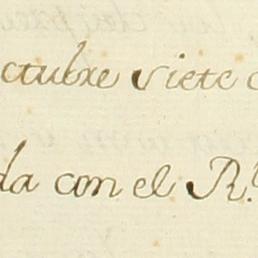 ctubre siete
da con el R.